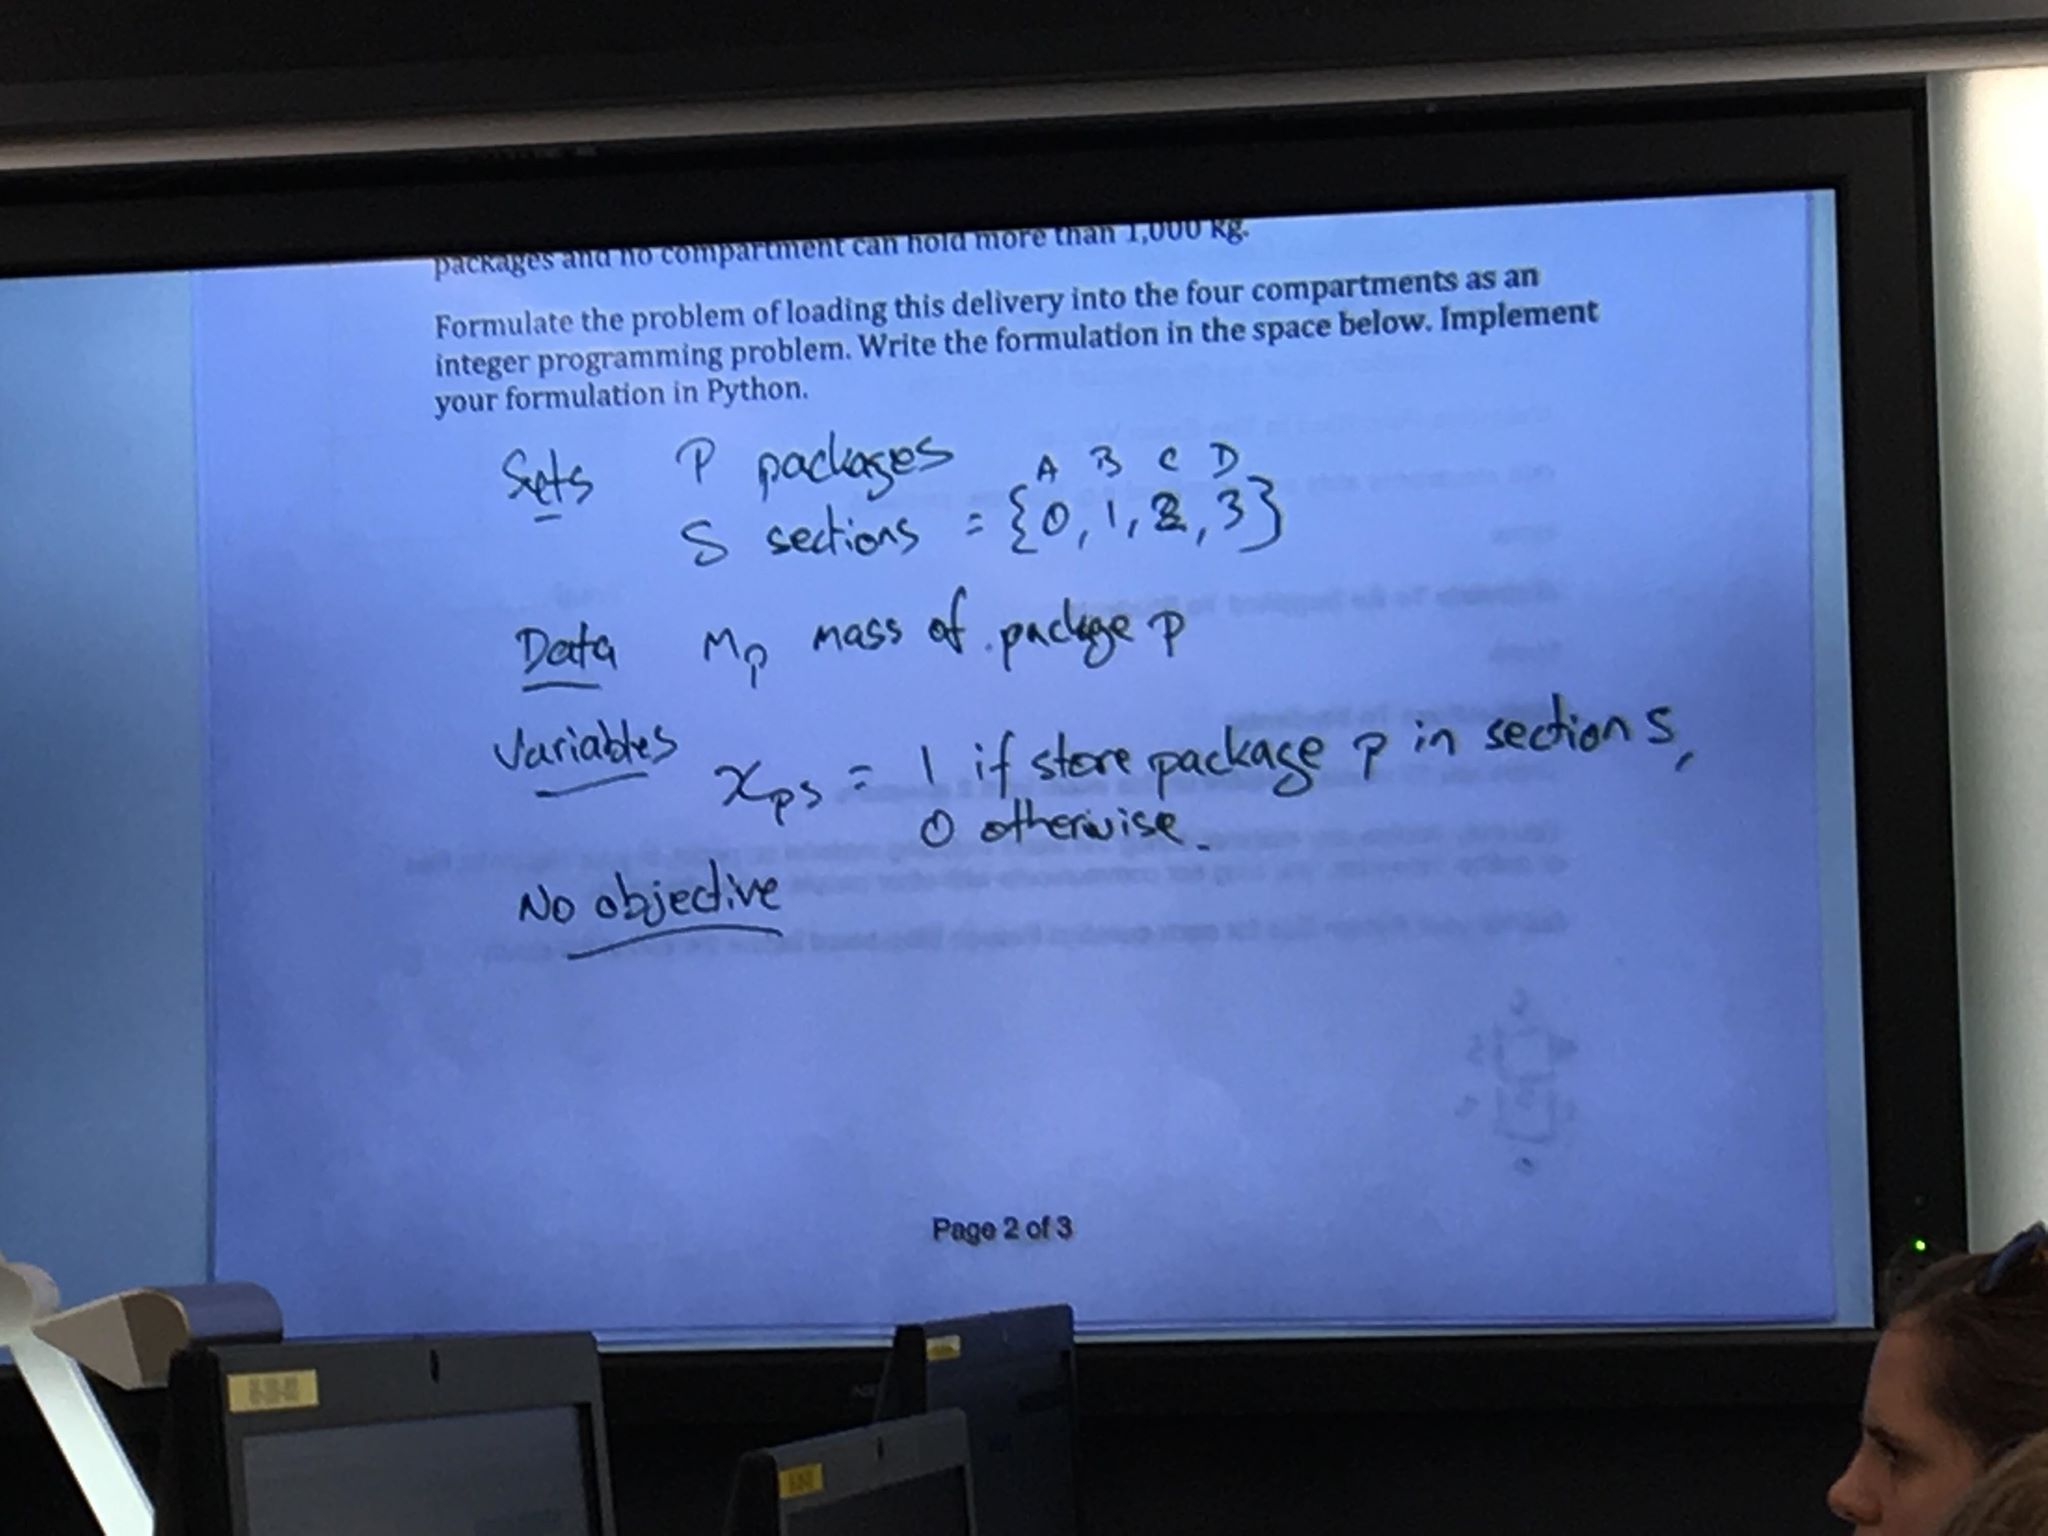 packages and no compartment can hold more than 1,000 kg.
Formulate the problem of loading this delivery into the four compartments as an
integer programming problem. Write the formulation in the space below. Implement
your formulation in Python.
Sets P packages
A B C D
S sections = {0, 1, 2, 3}
Data Mp mass of package p
Variables
xps = 1 if store package p in section s,
0 otherwise.
No objective
Page 2 of 3